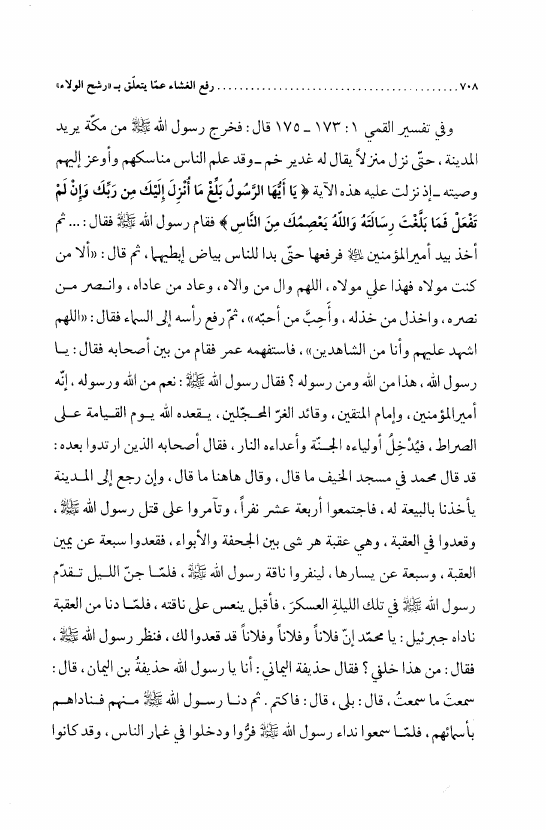 ٧٠٨ ........................................ رفع الغشاء عمّا يتعلّق بـ «رشح الولاء»
وفي تفسير القمي ١: ١٧٣ ـ ١٧٥ قال: فخرج رسول الله ﷺ من مكّة يريد
المدينة ، حتّى نزل منزلاً يقال له غدير خم ـ وقد علم الناس مناسكهم وأوعز إليهم
وصيته ـ إذ نزلت عليه هذه الآية ﴿ يَا أَيُّهَا الرَّسُولُ بَلِّغْ مَا أُنْزِلَ إِلَيْكَ مِن رَبِّكَ وَإِنْ لَمْ
تَفْعَلْ فَمَا بَلَّغْتَ رِسَالَتَهُ وَاللَّهُ يَعْصِمُكَ مِنَ النَّاسِ ﴾ فقام رسول الله ﷺ فقال: ... ثم
أخذ بيد أميرالمؤمنين ﵇ فرفعها حتّى بدا للناس بياض إبطيهما ، ثم قال: «ألا من
كنت مولاه فهذا علي مولاه ، اللهم وال من والاه ، وعاد من عاداه ، وانصر من
نصره ، واخذل من خذله ، وأَحِبَّ من أحبّه» ، ثمّ رفع رأسه إلى السماء فقال: «اللهم
اشهد عليهم وأنا من الشاهدين» ، فاستفهمه عمر فقام من بين أصحابه فقال: يا
رسول الله ، هذا من الله ومن رسوله ؟ فقال رسول الله ﷺ: نعم من الله ورسوله ، إنّه
أميرالمؤمنين ، وإمام المتقين ، وقائد الغرّ المحجّلين ، يقعده الله يوم القيامة على
الصراط ، فيُدْخِلُ أولياءه الجنّة وأعداءه النار ، فقال أصحابه الذين ارتدوا بعده :
قد قال محمد في مسجد الخيف ما قال ، وقال هاهنا ما قال ، وإن رجع إلى المدينة
يأخذنا بالبيعة له ، فاجتمعوا أربعة عشر نفراً ، وتآمروا على قتل رسول الله ﷺ ،
وقعدوا في العقبة ، وهي عقبة هر شى بين الجحفة والأبواء ، فقعدوا سبعة عن يمين
العقبة ، وسبعة عن يسارها ، لينفروا ناقة رسول الله ﷺ ، فلمّا جنّ الليل تقدّم
رسول الله ﷺ في تلك الليلةِ العسكرَ ، فأقبل ينعس على ناقته ، فلمّا دنا من العقبة
ناداه جبرئيل : يا محمّد إنّ فلاناً وفلاناً وفلاناً قد قعدوا لك ، فنظر رسول الله ﷺ ،
فقال: من هذا خلفي ؟ فقال حذيفة اليماني: أنا يا رسول الله حذيفةُ بن اليمان ، قال :
سمعتَ ما سمعتُ ، قال : بلى ، قال : فاكتم . ثم دنا رسول الله ﷺ منهم فناداهم
بأسمائهم ، فلمّا سمعوا نداء رسول الله ﷺ فرُّوا ودخلوا في غمار الناس ، وقد كانوا